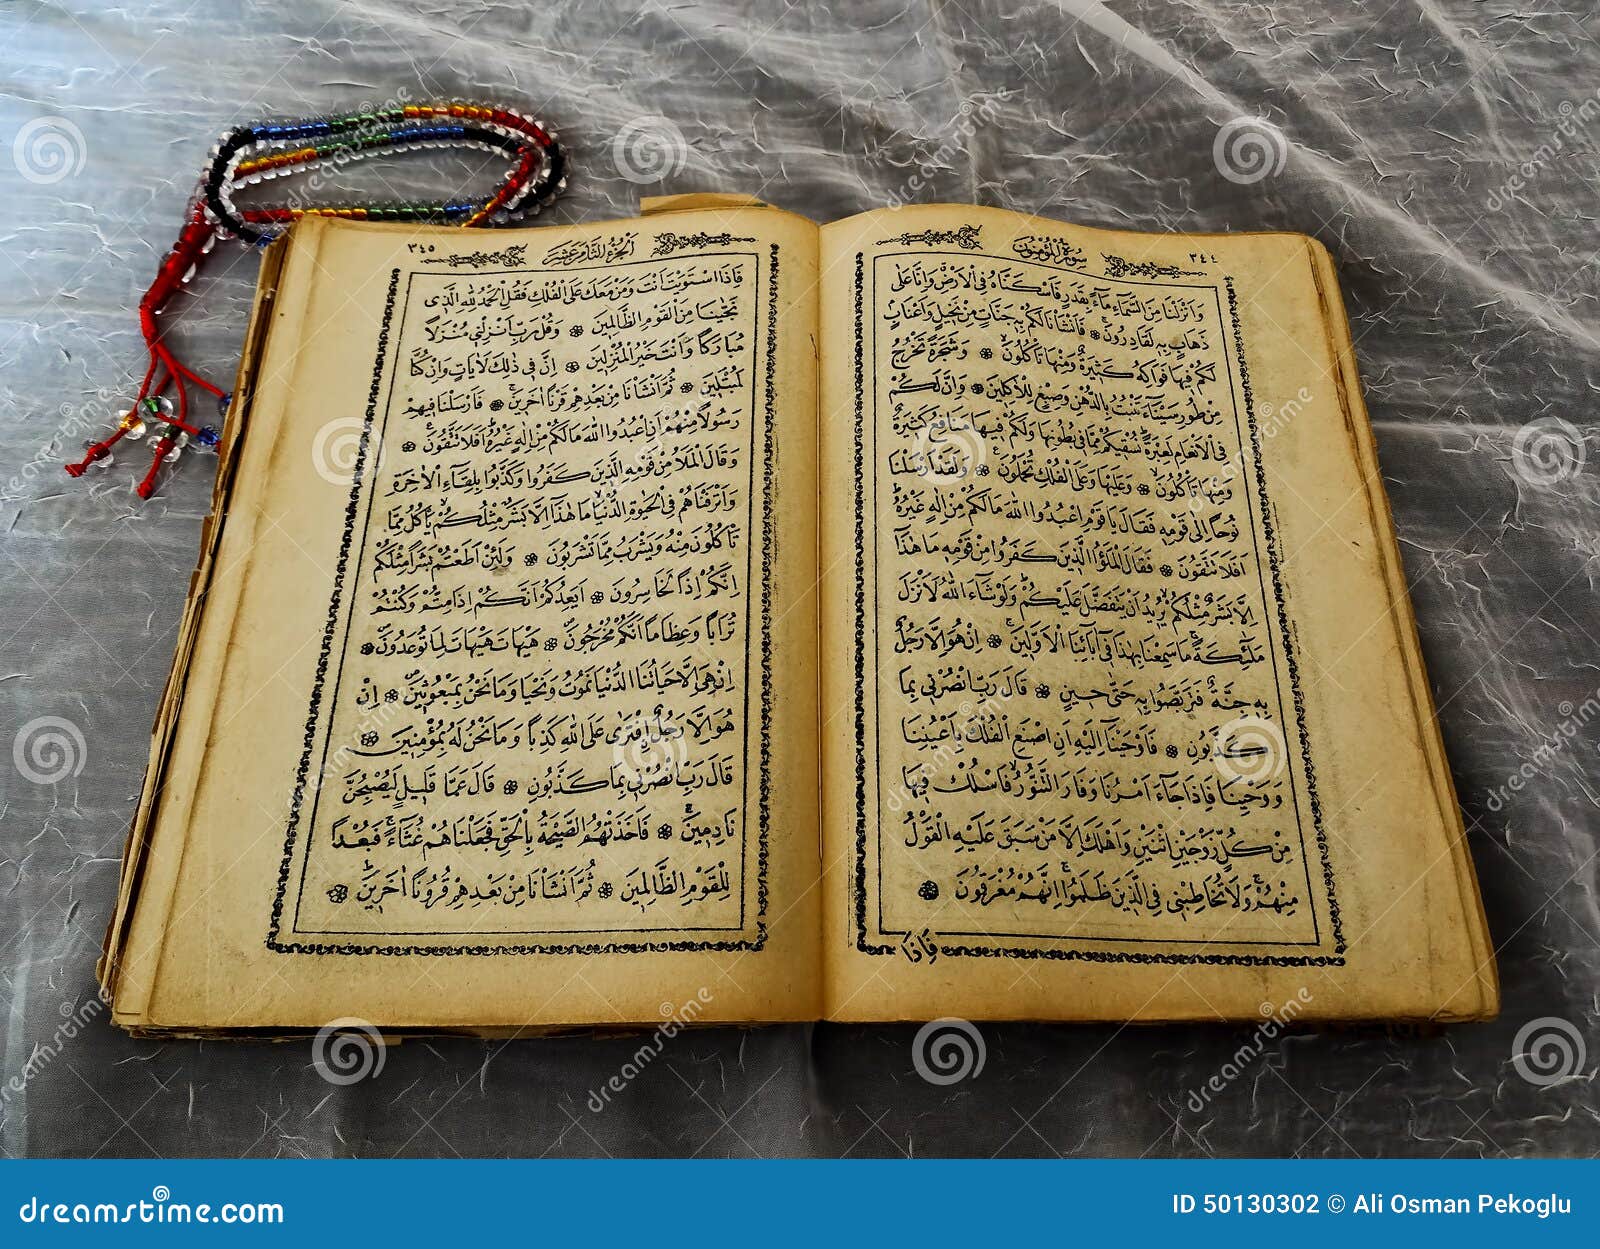 ٣٤٤ سُورَةُ الْمُؤْمِنُونَ
وَاَنْزَلْنَا مِنَ السَّمَٓاءِ مَٓاءً بِقَدَرٍ فَاَسْكَنَّاهُ فِى الْاَرْضِ وَاِنَّا عَلٰى
ذَهَابٍ بِهٖ لَقَادِرُونَ ۞ فَاَنْشَاْنَا لَكُمْ بِهٖ جَنَّاتٍ مِنْ نَخٖيلٍ وَاَعْنَابٍ
لَكُمْ فٖيهَا فَوَاكِهُ كَثٖيرَةٌ وَمِنْهَا تَاْكُلُونَ ۞ وَشَجَرَةً تَخْرُجُ
مِنْ طُورِ سَيْنَٓاءَ تَنْبُتُ بِالدُّهْنِ وَصِبْغٍ لِلْاٰكِلٖينَ ۞ وَاِنَّ لَكُمْ
فِى الْاَنْعَامِ لَعِبْرَةً نُسْقٖيكُمْ مِمَّا فٖى بُطُونِهَا وَلَكُمْ فٖيهَا مَنَافِعُ كَثٖيرَةٌ
وَمِنْهَا تَاْكُلُونَ ۞ وَعَلَيْهَا وَعَلَى الْفُلْكِ تُحْمَلُونَ ۞ وَلَقَدْ اَرْسَلْنَا
نُوحًا اِلٰى قَوْمِهٖ فَقَالَ يَا قَوْمِ اعْبُدُوا اللّٰهَ مَا لَكُمْ مِنْ اِلٰهٍ غَيْرُهُ
اَفَلَا تَتَّقُونَ ۞ فَقَالَ الْمَلَؤُا الَّذٖينَ كَفَرُوا مِنْ قَوْمِهٖ مَا هٰذَٓا
اِلَّا بَشَرٌ مِثْلُكُمْ يُرٖيدُ اَنْ يَتَفَضَّلَ عَلَيْكُمْ وَلَوْ شَٓاءَ اللّٰهُ لَاَنْزَلَ
مَلٰٓئِكَةً مَا سَمِعْنَا بِهٰذَا فٖٓى اٰبَٓائِنَا الْاَوَّلٖينَ ۞ اِنْ هُوَ اِلَّا رَجُلٌ
بِهٖ جِنَّةٌ فَتَرَبَّصُوا بِهٖ حَتّٰى حٖينٍ ۞ قَالَ رَبِّ انْصُرْنٖى بِمَا
كَذَّبُونِ ۞ فَاَوْحَيْنَٓا اِلَيْهِ اَنِ اصْنَعِ الْفُلْكَ بِاَعْيُنِنَا
وَوَحْيِنَا فَاِذَا جَٓاءَ اَمْرُنَا وَفَارَ التَّنُّورُ فَاسْلُكْ فٖيهَا
مِنْ كُلٍّ زَوْجَيْنِ اثْنَيْنِ وَاَهْلَكَ اِلَّا مَنْ سَبَقَ عَلَيْهِ الْقَوْلُ
مِنْهُمْ وَلَا تُخَاطِبْنٖى فِى الَّذٖينَ ظَلَمُوا اِنَّهُمْ مُغْرَقُونَ ۞
فَاِذَا
اَلْجُزْءُ الثَّامِنَ عَشَرَ ٣٤٥
فَاِذَا اسْتَوَيْتَ اَنْتَ وَمَنْ مَعَكَ عَلَى الْفُلْكِ فَقُلِ الْحَمْدُ لِلّٰهِ الَّذٖى
نَجّٰينَا مِنَ الْقَوْمِ الظَّالِمٖينَ ۞ وَقُلْ رَبِّ اَنْزِلْنٖى مُنْزَلًا
مُبَارَكًا وَاَنْتَ خَيْرُ الْمُنْزِلٖينَ ۞ اِنَّ فٖى ذٰلِكَ لَاٰيَاتٍ وَاِنْ كُنَّا
لَمُبْتَلٖينَ ۞ ثُمَّ اَنْشَاْنَا مِنْ بَعْدِهِمْ قَرْنًا اٰخَرٖينَ ۞ فَاَرْسَلْنَا فٖيهِمْ
رَسُولًا مِنْهُمْ اَنِ اعْبُدُوا اللّٰهَ مَا لَكُمْ مِنْ اِلٰهٍ غَيْرُهُ اَفَلَا تَتَّقُونَ ۞
وَقَالَ الْمَلَاُ مِنْ قَوْمِهِ الَّذٖينَ كَفَرُوا وَكَذَّبُوا بِلِقَٓاءِ الْاٰخِرَةِ
وَاَتْرَفْنَاهُمْ فِى الْحَيٰوةِ الدُّنْيَا مَا هٰذَٓا اِلَّا بَشَرٌ مِثْلُكُمْ يَاْكُلُ مِمَّا
تَاْكُلُونَ مِنْهُ وَيَشْرَبُ مِمَّا تَشْرَبُونَ ۞ وَلَئِنْ اَطَعْتُمْ بَشَرًا مِثْلَكُمْ
اِنَّكُمْ اِذًا لَخَاسِرُونَ ۞ اَيَعِدُكُمْ اَنَّكُمْ اِذَا مِتُّمْ وَكُنْتُمْ
تُرَابًا وَعِظَامًا اَنَّكُمْ مُخْرَجُونَ ۞ هَيْهَاتَ هَيْهَاتَ لِمَا تُوعَدُونَ ۞
اِنْ هِىَ اِلَّا حَيَاتُنَا الدُّنْيَا نَمُوتُ وَنَحْيَا وَمَا نَحْنُ بِمَبْعُوثٖينَ ۞ اِنْ
هُوَ اِلَّا رَجُلٌ افْتَرٰى عَلَى اللّٰهِ كَذِبًا وَمَا نَحْنُ لَهُ بِمُؤْمِنٖينَ ۞
قَالَ رَبِّ انْصُرْنٖى بِمَا كَذَّبُونِ ۞ قَالَ عَمَّا قَلٖيلٍ لَيُصْبِحُنَّ
نَادِمٖينَ ۞ فَاَخَذَتْهُمُ الصَّيْحَةُ بِالْحَقِّ فَجَعَلْنَاهُمْ غُثَٓاءً فَبُعْدًا
لِلْقَوْمِ الظَّالِمٖينَ ۞ ثُمَّ اَنْشَاْنَا مِنْ بَعْدِهِمْ قُرُونًا اٰخَرٖينَ ۞
dreamstime.com
ID 50130302 © Ali Osman Pekoglu